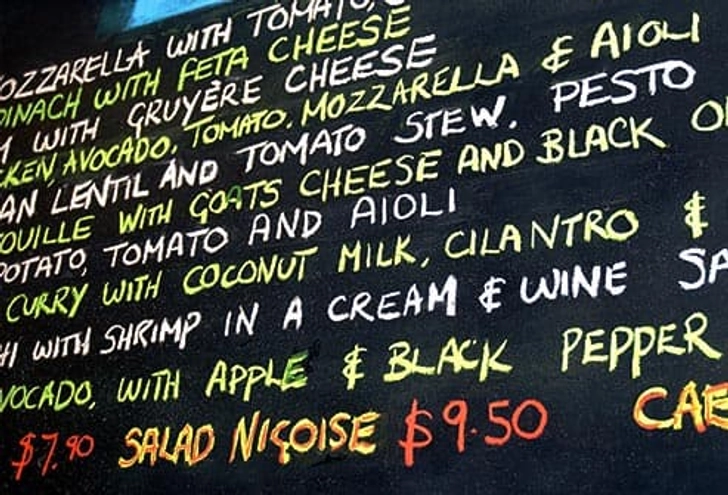 OZZARELLA WITH TOMATO,
PINACH WITH FETA CHEESE
M WITH GRUYÈRE CHEESE
CKEN, AVOCADO, TOMATO, MOZZARELLA & AIOLI
AN LENTIL AND TOMATO STEW. PESTO
OUILLE WITH GOATS CHEESE AND BLACK O
POTATO, TOMATO AND AIOLI
CURRY WITH COCONUT MILK, CILANTRO &
HI WITH SHRIMP IN A CREAM & WINE SA
VOCADO, WITH APPLE & BLACK PEPPER
$7.90 SALAD NIÇOISE $9.50 CAE